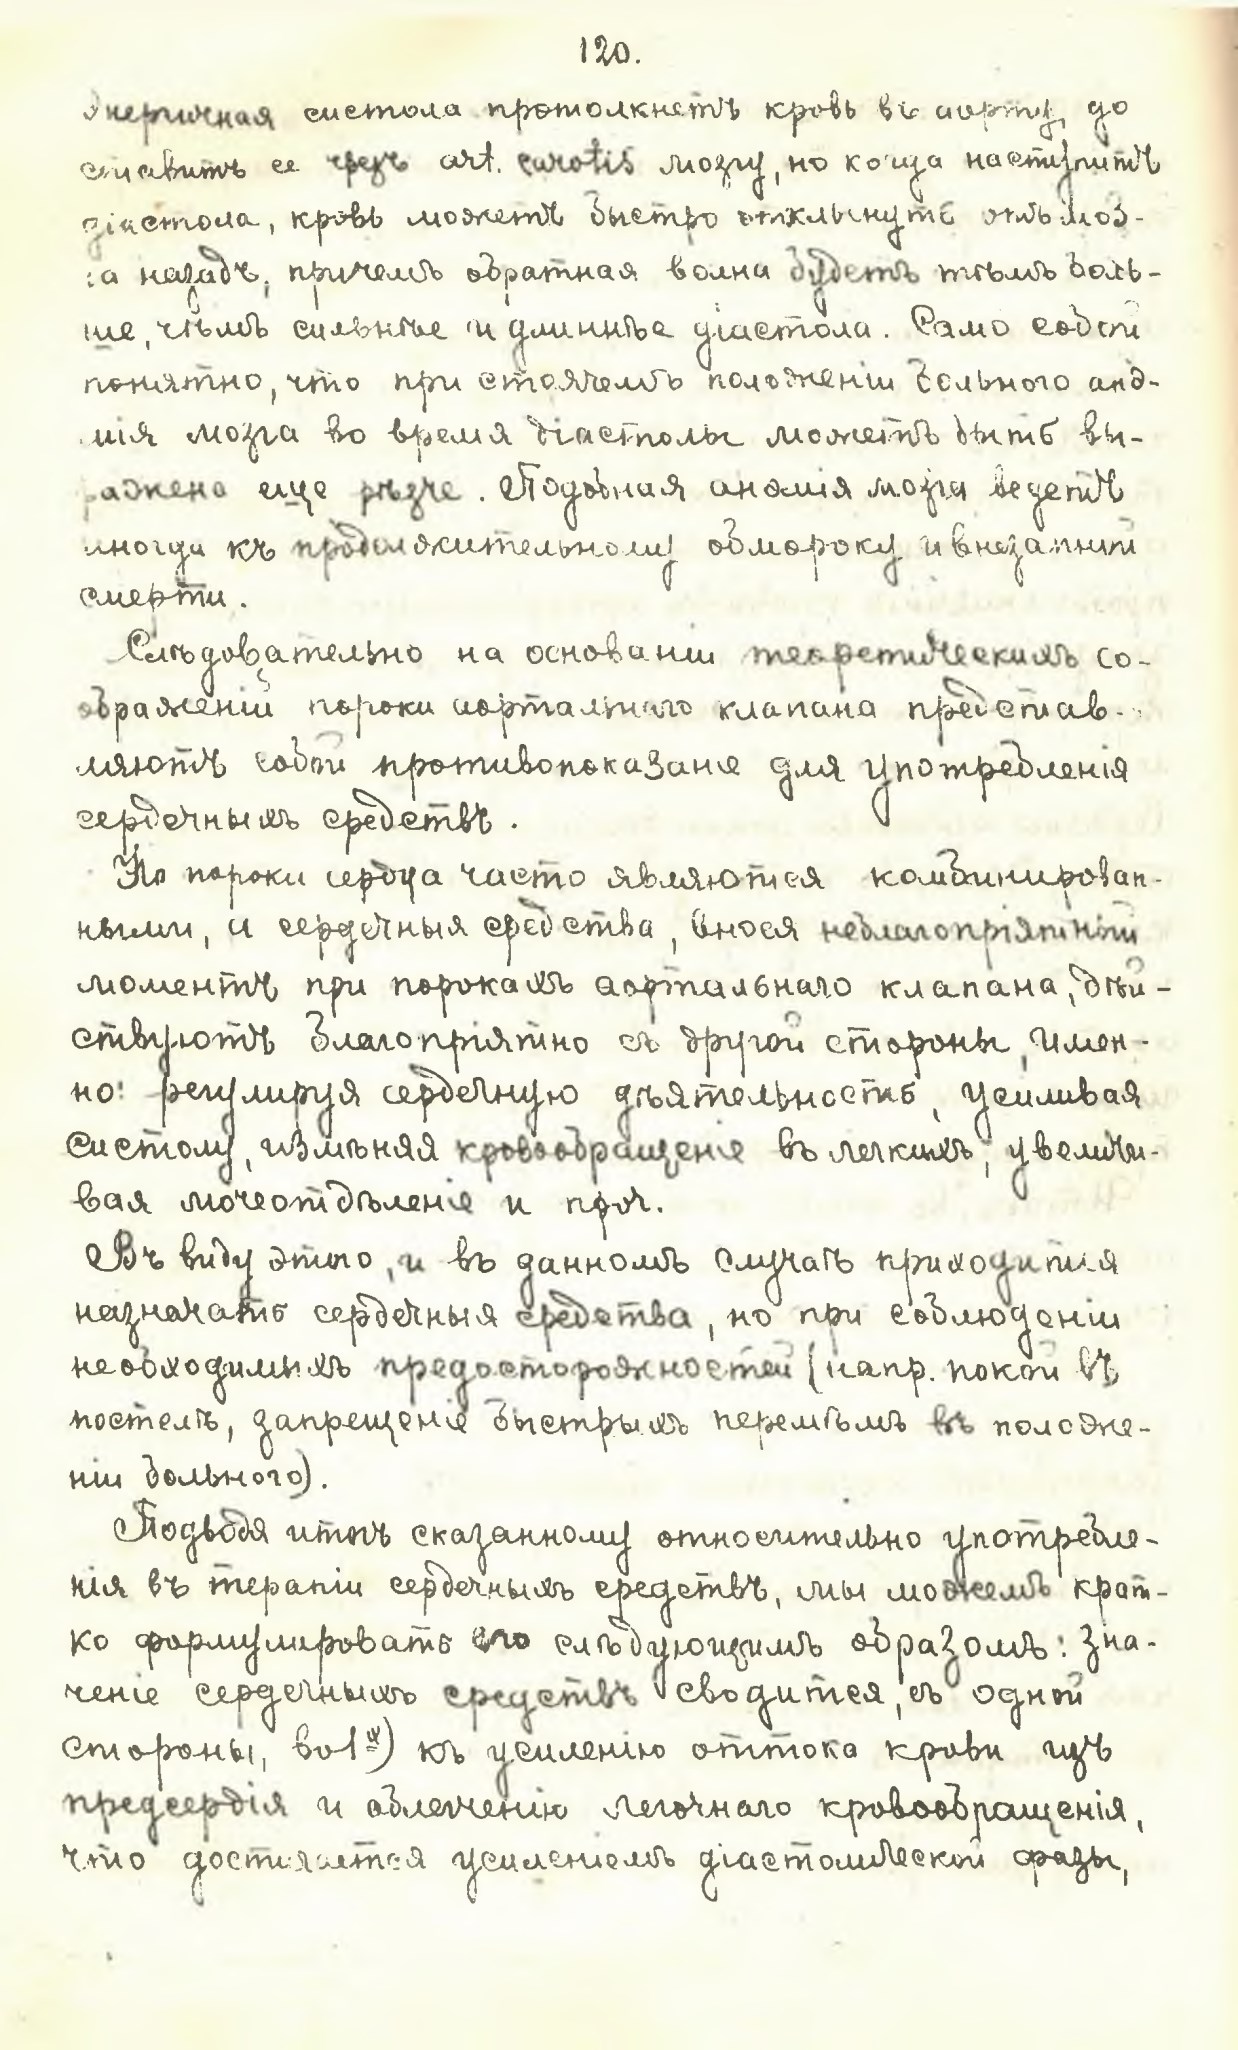 120.
Энергичная систола протолкнетъ кровь въ аорту, до
ставитъ ее чрезъ art. carotis мозгу, но когда наступитъ
діастола, кровь можетъ быстро отхлынуть отъ моз-
га назадъ, причемъ обратная волна будетъ тѣмъ боль-
ше, чѣмъ сильнѣе и длиннѣе діастола. Само собой
понятно, что при стоячемъ положеніи больного анэ-
мія мозга во время діастолы можетъ быть вы-
ражена еще рѣзче. Подобная анэмія мозга ведетъ
иногда къ продолжительному обмороку и внезапной
смерти.
Слѣдовательно на основаніи теоретическихъ со-
ображеній пороки аортальнаго клапана представ-
ляютъ собой противопоказаніе для употребленія
сердечныхъ средствъ.
Но пороки сердца часто являются комбинирован-
ными, и сердечныя средства, внося неблагопріятный
моментъ при порокахъ аортальнаго клапана, дѣй-
ствуютъ благопріятно съ другой стороны, имен-
но: регулируя сердечную дѣятельность, усиливая
систолу, измѣняя кровообращеніе въ легкихъ, увеличи-
вая мочеотдѣленіе и проч.
Въ виду этого, и въ данномъ случаѣ приходится
назначать сердечныя средства, но при соблюденіи
необходимыхъ предосторожностей (напр. покой въ
постелѣ, запрещеніе быстрыхъ перемѣнъ въ положе-
ніи больного).
Подводя итогъ сказанному относительно употребле-
нія въ терапіи сердечныхъ средствъ, мы можемъ крат-
ко формулировать его слѣдующимъ образомъ: зна-
ченіе сердечныхъ средствъ сводится, съ одной
стороны, во 1ᵡ) къ усиленію оттока крови изъ
предсердія и облегченію легочнаго кровообращенія,
что достигается усиленіемъ діастолической фазы,